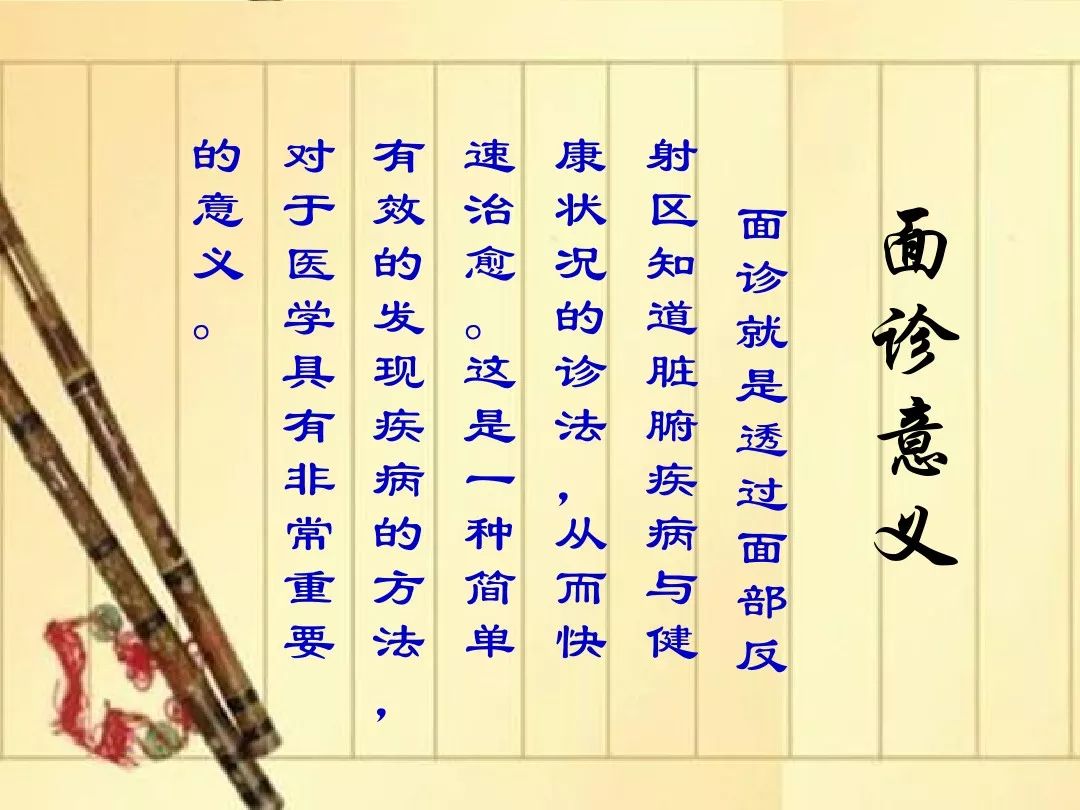 面诊意义
面诊就是透过面部反
射区知道脏腑疾病与健
康状况的诊法，从而快
速治愈。这是一种简单
有效的发现疾病的方法，
对于医学具有非常重要
的意义。